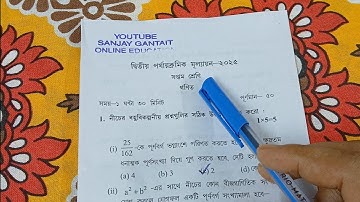 YOUTUBE
SANJAY GANTAIT
ONLINE EDUCATION
দ্বিতীয় পর্যায়ক্রমিক মূল্যায়ন—২০২৫
সপ্তম শ্রেণি
গণিত
সময়—১ ঘন্টা ৩০ মিনিট পূর্ণমান— ৫০
1. নীচের বহুবিকল্পীয় প্রশ্নগুলির সঠিক করো : 1×5=5
(i) 25/162 -কে পূর্ণবর্গ ভগ্নাংশে পরিণত করতে হবে, ক্ষুদ্রতম
ধনাত্মক পূর্ণসংখ্যা দিয়ে গুণ করতে হবে, সেটি
(a) 4 (b) 3 2 (d)
(ii) a² + b² -এর সাথে নীচের কোন বীজগাণিতিক